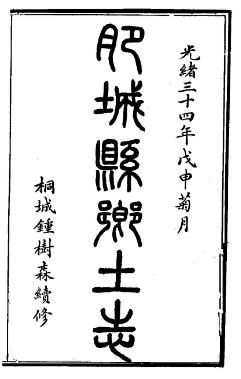 光緒三十四年戊申菊月
肥城縣鄉土志
桐城鍾樹森續修